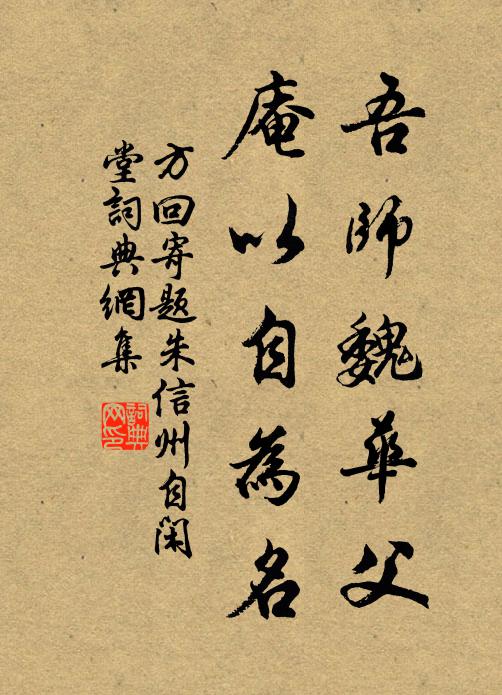 吾師魏華父
庵以自為名
方回寄題朱信州自閑
堂詞典網集
詞典
网印